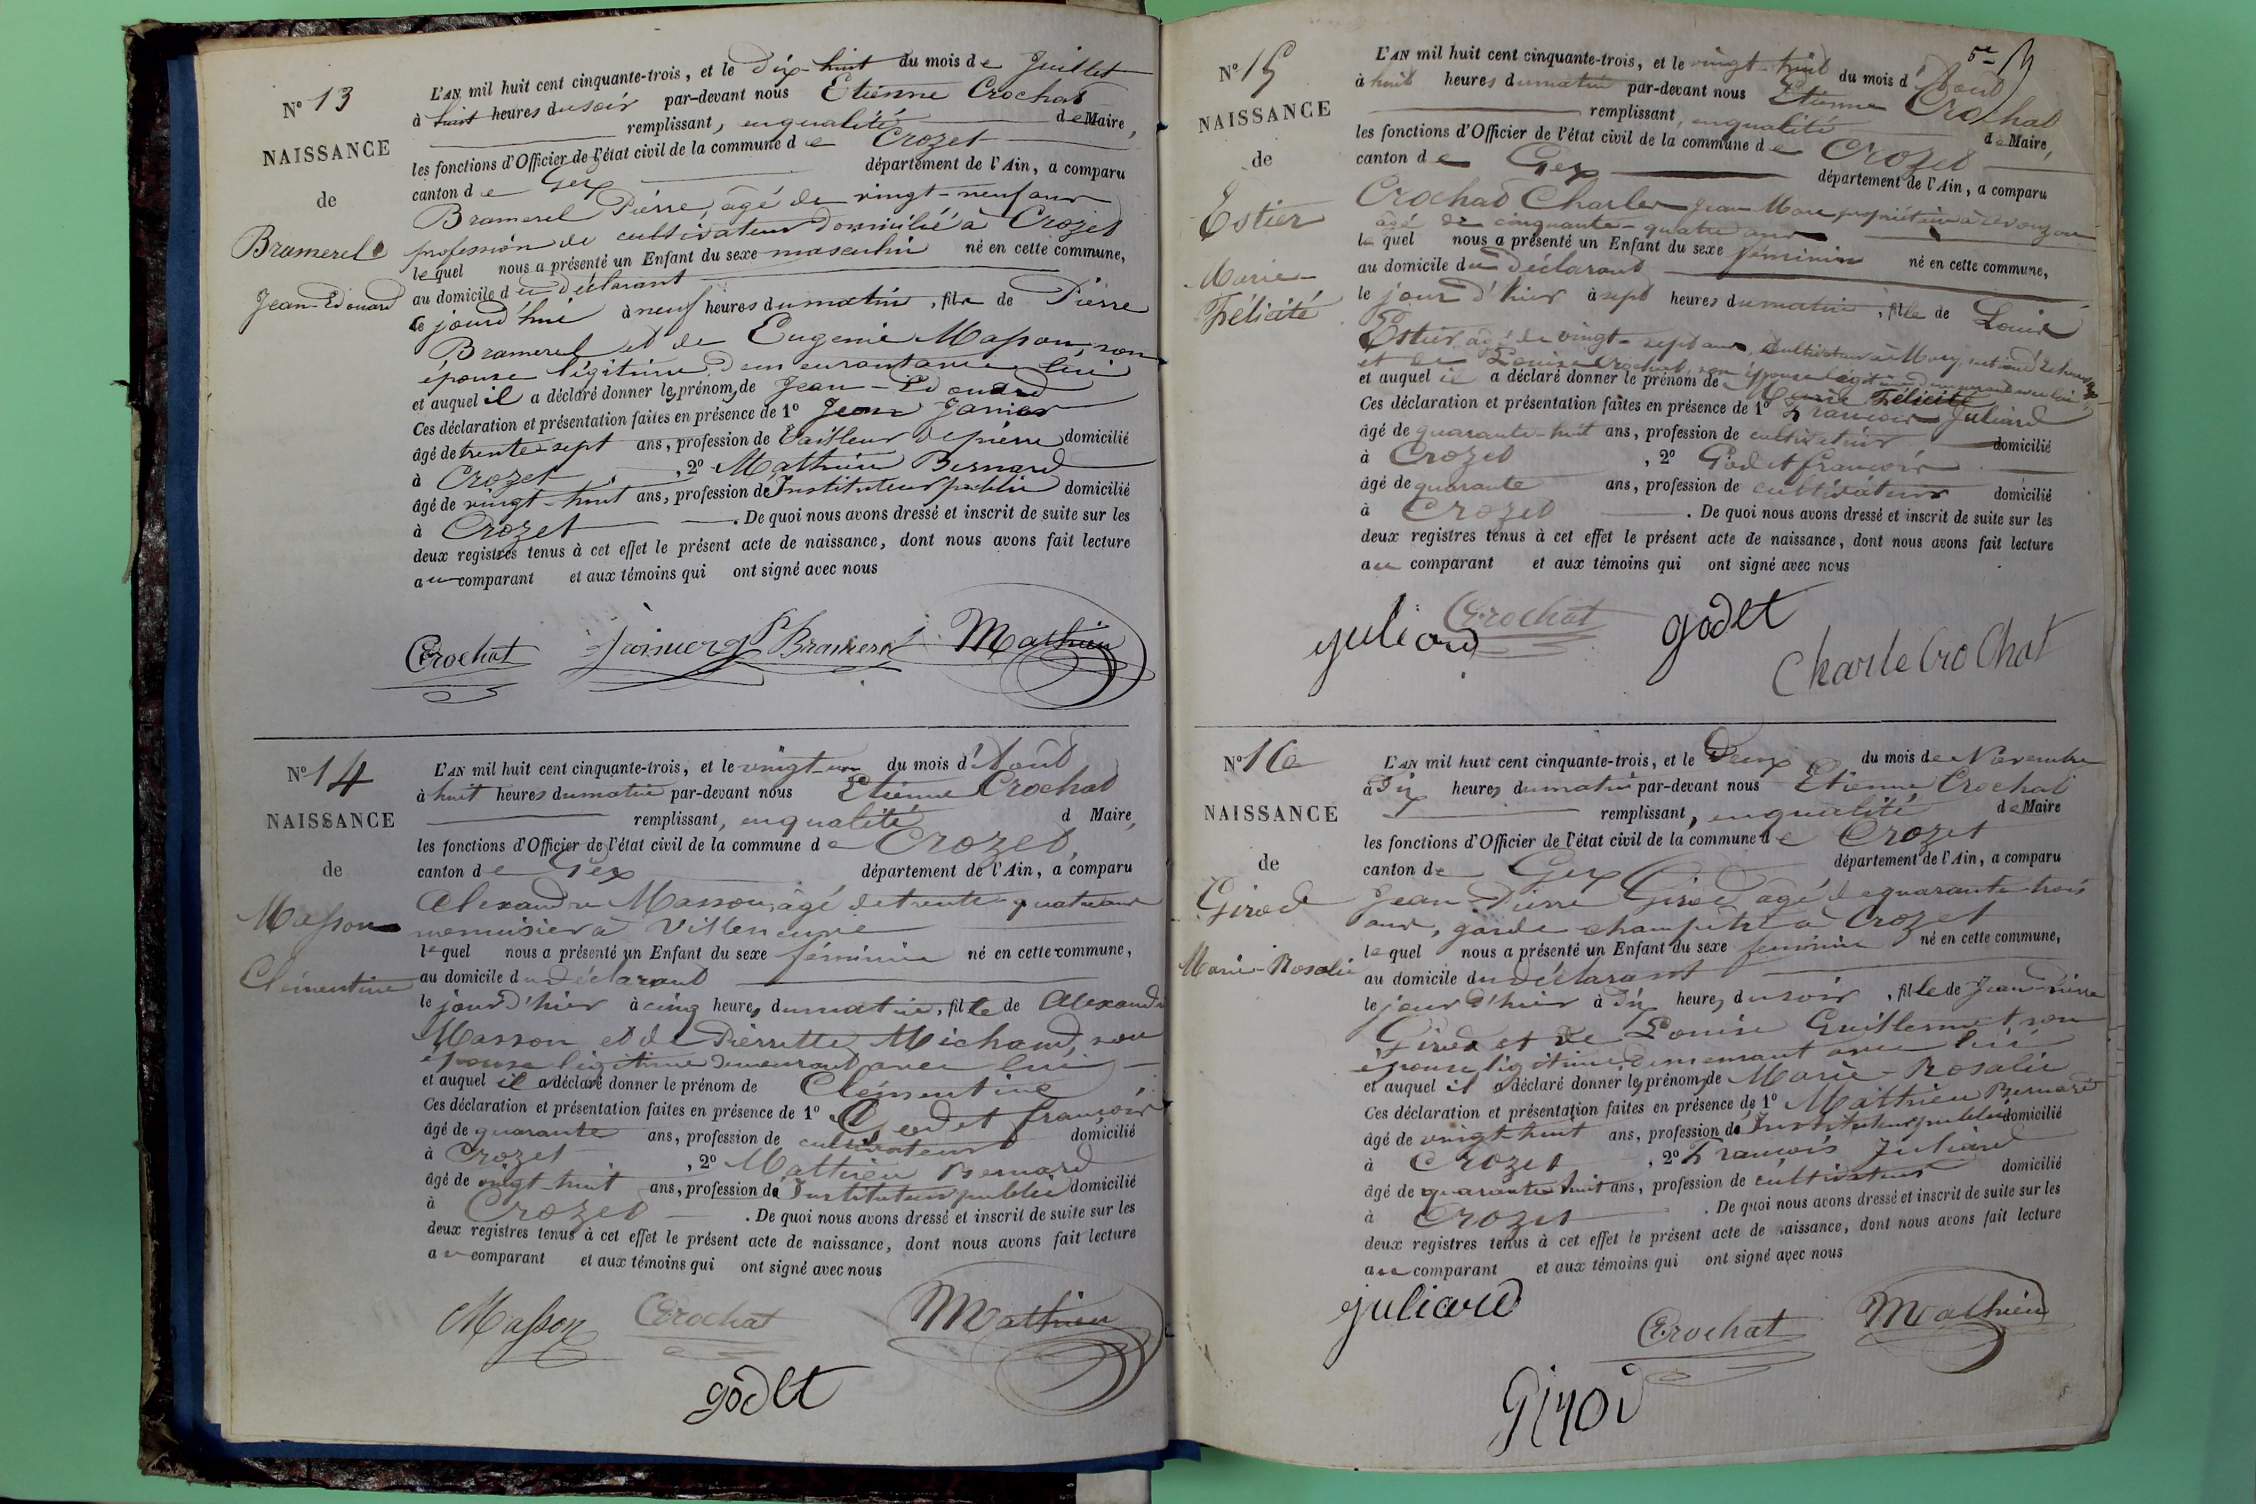 N° 13
NAISSANCE
de
Bramerel
Jean-Edouard
L'AN mil huit cent cinquante-trois, et le dix-huit du mois de Juillet
à huit heures du soir par-devant nous Etienne Crochat
remplissant, en qualité de Maire,
les fonctions d'Officier de l'état civil de la commune de Crozet
canton de Gex département de l'Ain, a comparu
Bramerel Pierre, âgé de vingt-neuf ans
profession de cultivateur domicilié à Crozet
lequel nous a présenté un Enfant du sexe masculin né en cette commune,
au domicile du déclarant
le jourd'hui à neuf heures du matin, fils de Pierre
Bramerel et de Eugenie Masson, son
épouse légitime demeurant avec lui
et auquel il a déclaré donner les prénoms de Jean-Edouard
Ces déclaration et présentation faites en présence de 1° Jean Janier
âgé de trente-sept ans, profession de tailleur de pierre domicilié
à Crozet, 2° Mathieu Bernard
âgé de vingt-huit ans, profession de Instituteur public domicilié
à Crozet. De quoi nous avons dressé et inscrit de suite sur les
deux registres tenus à cet effet le présent acte de naissance, dont nous avons fait lecture
au comparant et aux témoins qui ont signé avec nous
Crochat Bramerel Mathieu
N° 14
NAISSANCE
de
Masson
Clémentine
L'AN mil huit cent cinquante-trois, et le vingt-un du mois d'Août
à huit heures du matin par-devant nous Etienne Crochat
remplissant, en qualité d Maire,
les fonctions d'Officier de l'état civil de la commune de Crozet,
canton de Gex département de l'Ain, a comparu
Alexandre Masson, âgé de trente-quatre ans
menuisier à Villeneuve
lequel nous a présenté un Enfant du sexe féminin né en cette commune,
au domicile du déclarant
le jour d'hier à cinq heures du matin, fille de Alexandre
Masson et de Pierrette Michaud, son
épouse légitime demeurant avec lui
et auquel il a déclaré donner le prénom de Clémentine
Ces déclaration et présentation faites en présence de 1° Godet françois
âgé de quarante ans, profession de cultivateur domicilié
à Crozet, 2° Mathieu Bernard
âgé de vingt-huit ans, profession de Instituteur public domicilié
à Crozet. De quoi nous avons dressé et inscrit de suite sur les
deux registres tenus à cet effet le présent acte de naissance, dont nous avons fait lecture
au comparant et aux témoins qui ont signé avec nous
Masson Crochat Mathieu
godet
N° 15
NAISSANCE
de
Estier
Marie-
Félicité
L'AN mil huit cent cinquante-trois, et le vingt-huit du mois d'Août
à huit heures du matin par-devant nous Etienne Crochat
remplissant, en qualité de Maire,
les fonctions d'Officier de l'état civil de la commune de Crozet
canton de Gex département de l'Ain, a comparu
Crochat Charles Jean Marc propriétaire à Avouzon
âgé de cinquante-quatre ans
lequel nous a présenté un Enfant du sexe féminin né en cette commune,
au domicile du déclarant
le jour d'hier à sept heures du matin, fille de Louis
Estier, âgé de vingt-sept ans, cultivateur à
et de Louise Crochat, son épouse légitime demeurant avec lui
et auquel il a déclaré donner le prénom de Marie Félicité
Ces déclaration et présentation faites en présence de 1° françois Juliard
âgé de quarante-huit ans, profession de cultivateur domicilié
à Crozet, 2° Godet françois
âgé de quarante ans, profession de cultivateur domicilié
à Crozet. De quoi nous avons dressé et inscrit de suite sur les
deux registres tenus à cet effet le présent acte de naissance, dont nous avons fait lecture
au comparant et aux témoins qui ont signé avec nous
juliard Crochat godet
Charle CroChat
N° 16
NAISSANCE
de
Girod
Marie-Rosalie
L'AN mil huit cent cinquante-trois, et le Deux du mois de Novembre
à dix heures du matin par-devant nous Etienne Crochat
remplissant, en qualité de Maire
les fonctions d'Officier de l'état civil de la commune de Crozet
canton de Gex département de l'Ain, a comparu
Jean-Pierre Girod âgé de quarante-trois
ans, garde champêtre à Crozet
lequel nous a présenté un Enfant du sexe féminin né en cette commune,
au domicile du déclarant
le jour d'hier à dix heures du soir, fille de Jean-Pierre
Girod et de Louise Guillermet son
épouse légitime demeurant avec lui
et auquel il a déclaré donner les prénoms de Marie-Rosalie
Ces déclaration et présentation faites en présence de 1° Mathieu Bernard
âgé de vingt-huit ans, profession de Instituteur public domicilié
à Crozet, 2° françois Juliard
âgé de quarante huit ans, profession de cultivateur domicilié
à Crozet. De quoi nous avons dressé et inscrit de suite sur les
deux registres tenus à cet effet le présent acte de naissance, dont nous avons fait lecture
au comparant et aux témoins qui ont signé avec nous
juliard
Crochat Mathieu
Girod